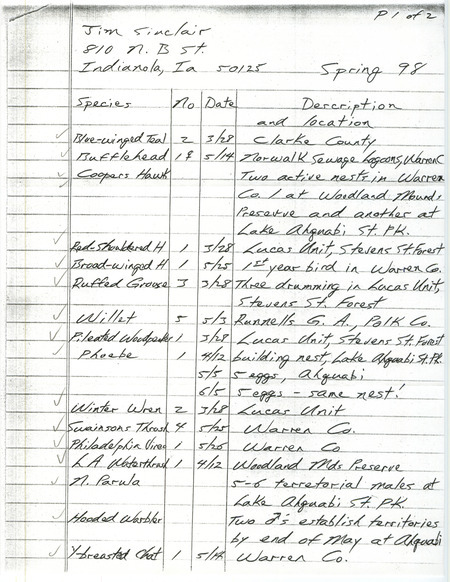 P 1 of 2
Jim Sinclair
810 N. B St.
Indianola, Ia 50125 Spring 98
Species No Date Dercription
and location
Blue-winged Teal 2 3/28 Clarke County
Bufflehead 1♀ 5/14 Norwalk Sewage Lagoons, Warren C
Coopers Hawk Two active nests in Warren
Co. 1 at Woodland Mounds
Preserve and another at
Lake Ahquabi St. PK.
Red-Shouldered H 1 3/28 Lucas Unit, Stevens St Forest
Broad-winged H 1 5/25 1st year bird in Warren Co.
Ruffed Grouse 3 3/28 Three drumming in Lucas Unit,
Stevens St. Forest
Willet 5 5/3 Runnells G. A., Polk Co.
Pileated Woodpecker 1 3/28 Lucas Unit, Stevens St. Forest
Phoebe 1 4/12 building nest, Lake Ahquabi St. Pk.
5/5 5 eggs, Ahquabi
6/5 5 eggs - same nest!
Winter Wren 2 3/28 Lucas Unit
Swainsons Thrush 4 5/25 Warren Co.
Philadelphia Vireo 1 5/25 Warren Co
LA Waterthrush 1 4/12 Woodland Mds Preserve
N. Parula 5-6 terretorial males at
Lake Ahquabi St. PK.
Hooded Warbler Two ♂'s establish territories
by end of May at Ahquabi
Y-breasted Chat 1 5/14 Warren Co.